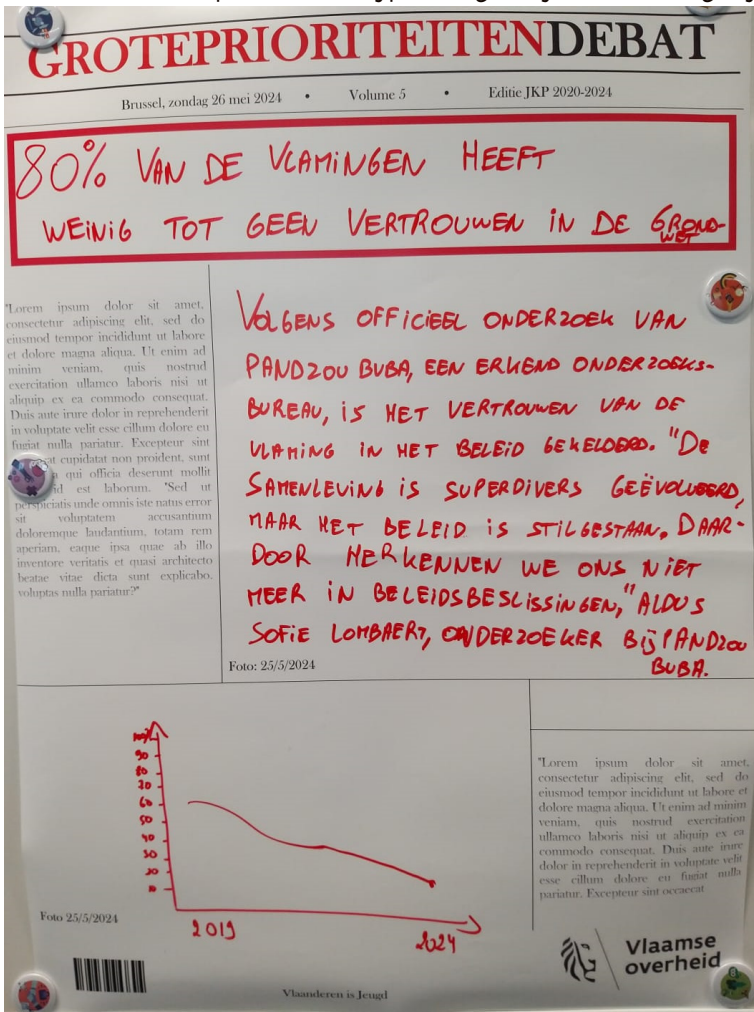 GROTEPRIORITEITENDEBAT
Brussel, zondag 26 mei 2024 • Volume 5 • Editie JKP 2020-2024
80% VAN DE VLAMINGEN HEEFT
WEINIG TOT GEEN VERTROUWEN IN DE GROND-
WET
"Lorem ipsum dolor sit amet,
consectetur adipiscing elit, sed do
eiusmod tempor incididunt ut labore
et dolore magna aliqua. Ut enim ad
minim veniam, quis nostrud
exercitation ullamco laboris nisi ut
aliquip ex ea commodo consequat.
Duis aute irure dolor in reprehenderit
in voluptate velit esse cillum dolore eu
fugiat nulla pariatur. Excepteur sint
cupidatat non proident, sunt
qui officia deserunt mollit
id est laborum. "Sed ut
perspiciatis unde omnis iste natus error
sit voluptatem accusantium
doloremque laudantium, totam rem
aperiam, eaque ipsa quae ab illo
inventore veritatis et quasi architecto
beatae vitae dicta sunt explicabo.
voluptas nulla pariatur?"
VOLGENS OFFICIEEL ONDERZOEK VAN
PANDZOU BUBA, EEN ERKEND ONDERZOEKS-
BUREAU, IS HET VERTROUWEN VAN DE
VLAMING IN HET BELEID GEKELDERD. "DE
SAMENLEVING IS SUPERDIVERS GEËVOLUEERD,
MAAR HET BELEID IS STILGESTAAN. DAAR-
DOOR HERKENNEN WE ONS NIET
MEER IN BELEIDSBESLISSINGEN," ALDUS
SOFIE LOMBAERT, ONDERZOEKER BIJ PANDZOU
BUBA.
Foto: 25/5/2024
100%
90
80
70
60
50
40
30
20
10
2019
2024
Foto 25/5/2024
"Lorem ipsum dolor sit amet,
consectetur adipiscing elit, sed do
eiusmod tempor incididunt ut labore et
dolore magna aliqua. Ut enim ad minim
veniam, quis nostrud exercitation
ullamco laboris nisi ut aliquip ex ea
commodo consequat. Duis aute irure
dolor in reprehenderit in voluptate velit
esse cillum dolore eu fugiat nulla
pariatur. Excepteur sint occaecat
Vlaamse
overheid
Vlaanderen is Jeugd